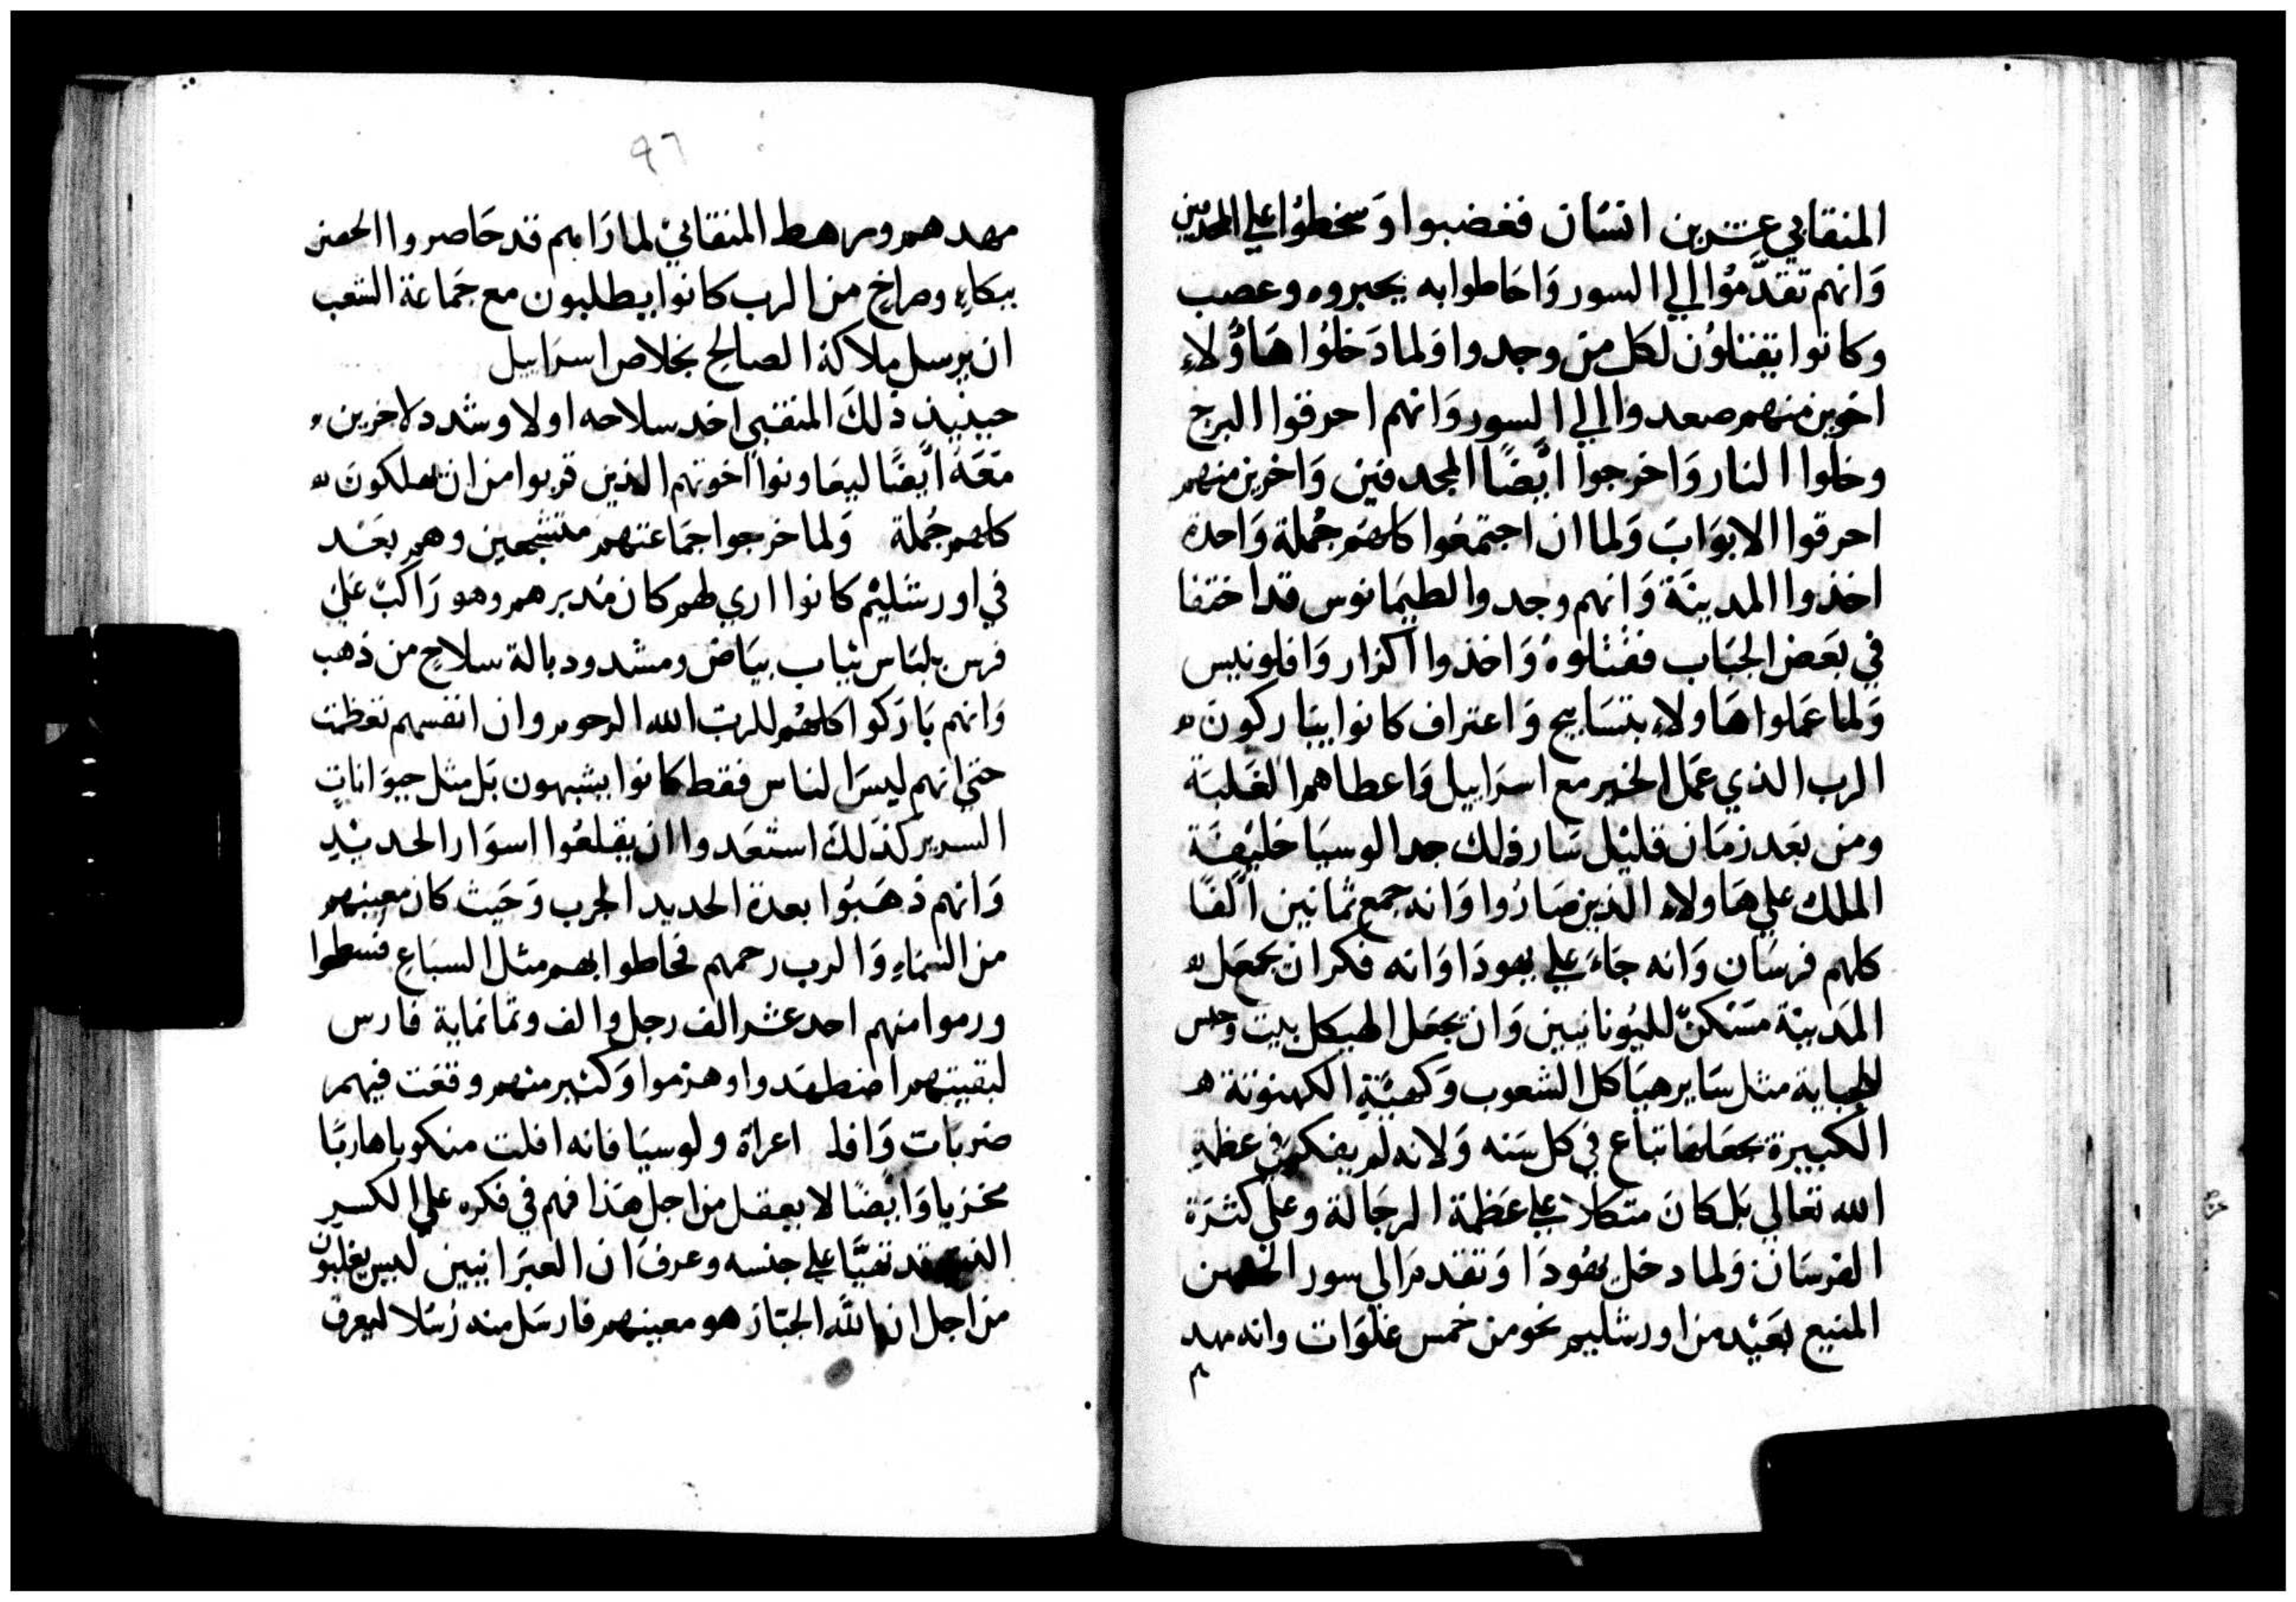 المنقابي عشرين انسَان فغضبوا وَسخطوُا علي المجدفين
وَانهم تقدَّموُا الي السور وَاحَاطوا به بجبروه وعصب
وكانوا يقتلوُن لكل من وجدوا وَلما دَخلوُا هَاوُلاءِ
اخرين منهم صعدوا الي السور وَانهم احرقوا البرج
وخلوا النار وَاخرجوا ايضًا المجدفين وَاخرين منهم
احرقوا الابوَابَ وَلما ان اجتمعَوا كلهَم جُملة وَاحدة
اخذوا المدينَة وَانهم وجدوا لطيمَانوس قد اختفا
في بعَض الجبَاب فقتلوهُ وَاخذوا اكرَار وَافلونيس
وَلما عَملوا هَاولاءِ بتسَابيح وَاعتراف كانوا يبَاركونَ
الرب الذي عمَل الخير مع اسرَاييل وَاعطاهم الغَلبَة
ومن بَعد زمَان قليل سَار وَلك جدا لوسيَا خليفَة
الملك علي هَاولاءِ الذين صَارُوا وَانه جمع ثمانين الفًا
كلهم فرسَان وَانه جَاءَ علي يهودَا وَانه فكر ان يجعَل
المدينة مسَكنّ لليوُنانيين وَان يجعَل الهيكل بيت
للجباية مثل سَاير هيَاكل الشعوب وَكهنَة الكهنوتة
الكبيرة يجعَلها تباع في كل سَنه وَلانه لم يفكر في عظمة
الله تعالي بَل كانَ متكلا علي عَظمة الرجَالة وعلي كثرَة
الفرسَان وَلما دخل يهوُدَا وَتقدم الي سور الحصن
المنيع بَعيْد من اورشليم نحو من خمس غلوَات وانه مهد
م
٩٦
مهدهم ورهط المنقابيْ لما رَاهم قد حَاصروا الحصن
ببكاءِ وصراخ من الرب كانوا يطلبون مع جمَاعة الشعب
ان يرسل ملاكه الصالح بخلاص اسرَاييل
حينيذ ذلكَ المنقبي اخد سلاحه اولا وشدد لاخرين
معَه ايضًا ليعَاونوا اخوتهم الذين قربوا من ان يهلكونَ
كلهم جُملة وَلما خرجوا جمَاعتهم متشجعين وهم بعَد
في اورشليْم كانوا اري لهم كان مُدبرهم وهو رَاكبٌ عَليْ
فرس بلبَاس ثيَاب بيَاض ومشدود بالة سلاح من ذهب
وَانهم بَارَكوا كلهم للربّ الله الرحوم وان انفسهم تعَظمت
حتي انهم ليسَ الناس فقط كانوا يشبهون بَل مثل حيوَاناتٍ
السرير كذلكَ استعَدوا ان يقلعَوا اسوَار الحديْدِ
وَانهم ذهَبُوا بعدة الحديد الحرب وَحَيث كان معينهم
من السمَاءِ وَالرب رحمهم فحاطوا بهم مثل السبَاعِ فتسطوا
ورموا منهم احد عشر الف رجل والف وثمانماية فارس
لبقيتهم اضطهدوا وهزموا وَكثير منهم وقعَت فيهم
ضربات وَافلـ اعراة ولوسيَا فانه افلت منكوبا هاربًا
مخزيا وَايضًا لا بعقل من اجل هَذا فهم في فكره علي الكسر
قد تعبَّا علي جنسه وعرفَ ان العبرَانيين ليس يغلبون
من اجل ان الله الجبَار هو معينهم فارسَل منه رُسُلا ليعرف